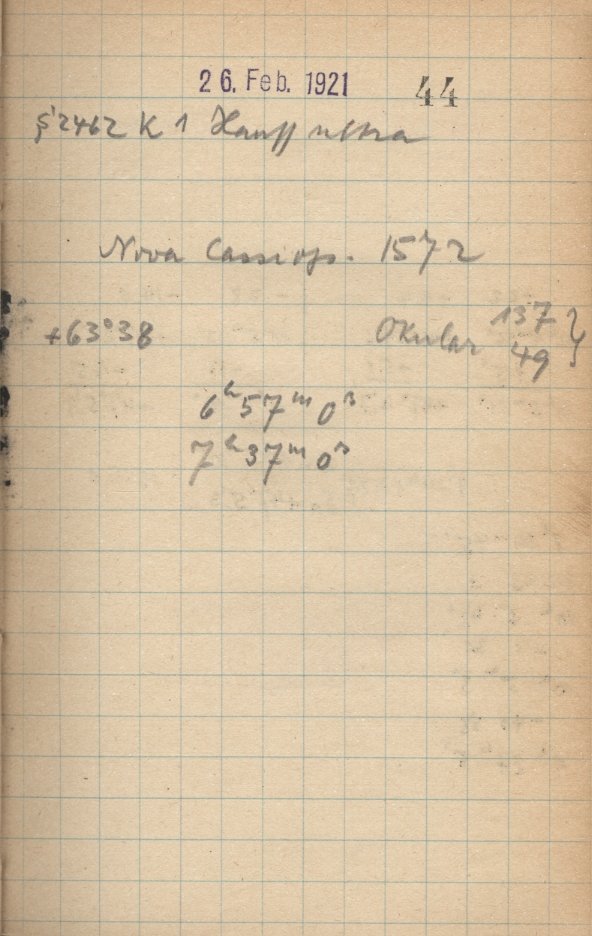 26. Feb. 1921 44
2462 K 1 Hauff ultra
Nova Cassiop. 1572
+63°38 Okular 137 }
49
6ʰ57ᵐ0ˢ
7ʰ37ᵐ0ˢ